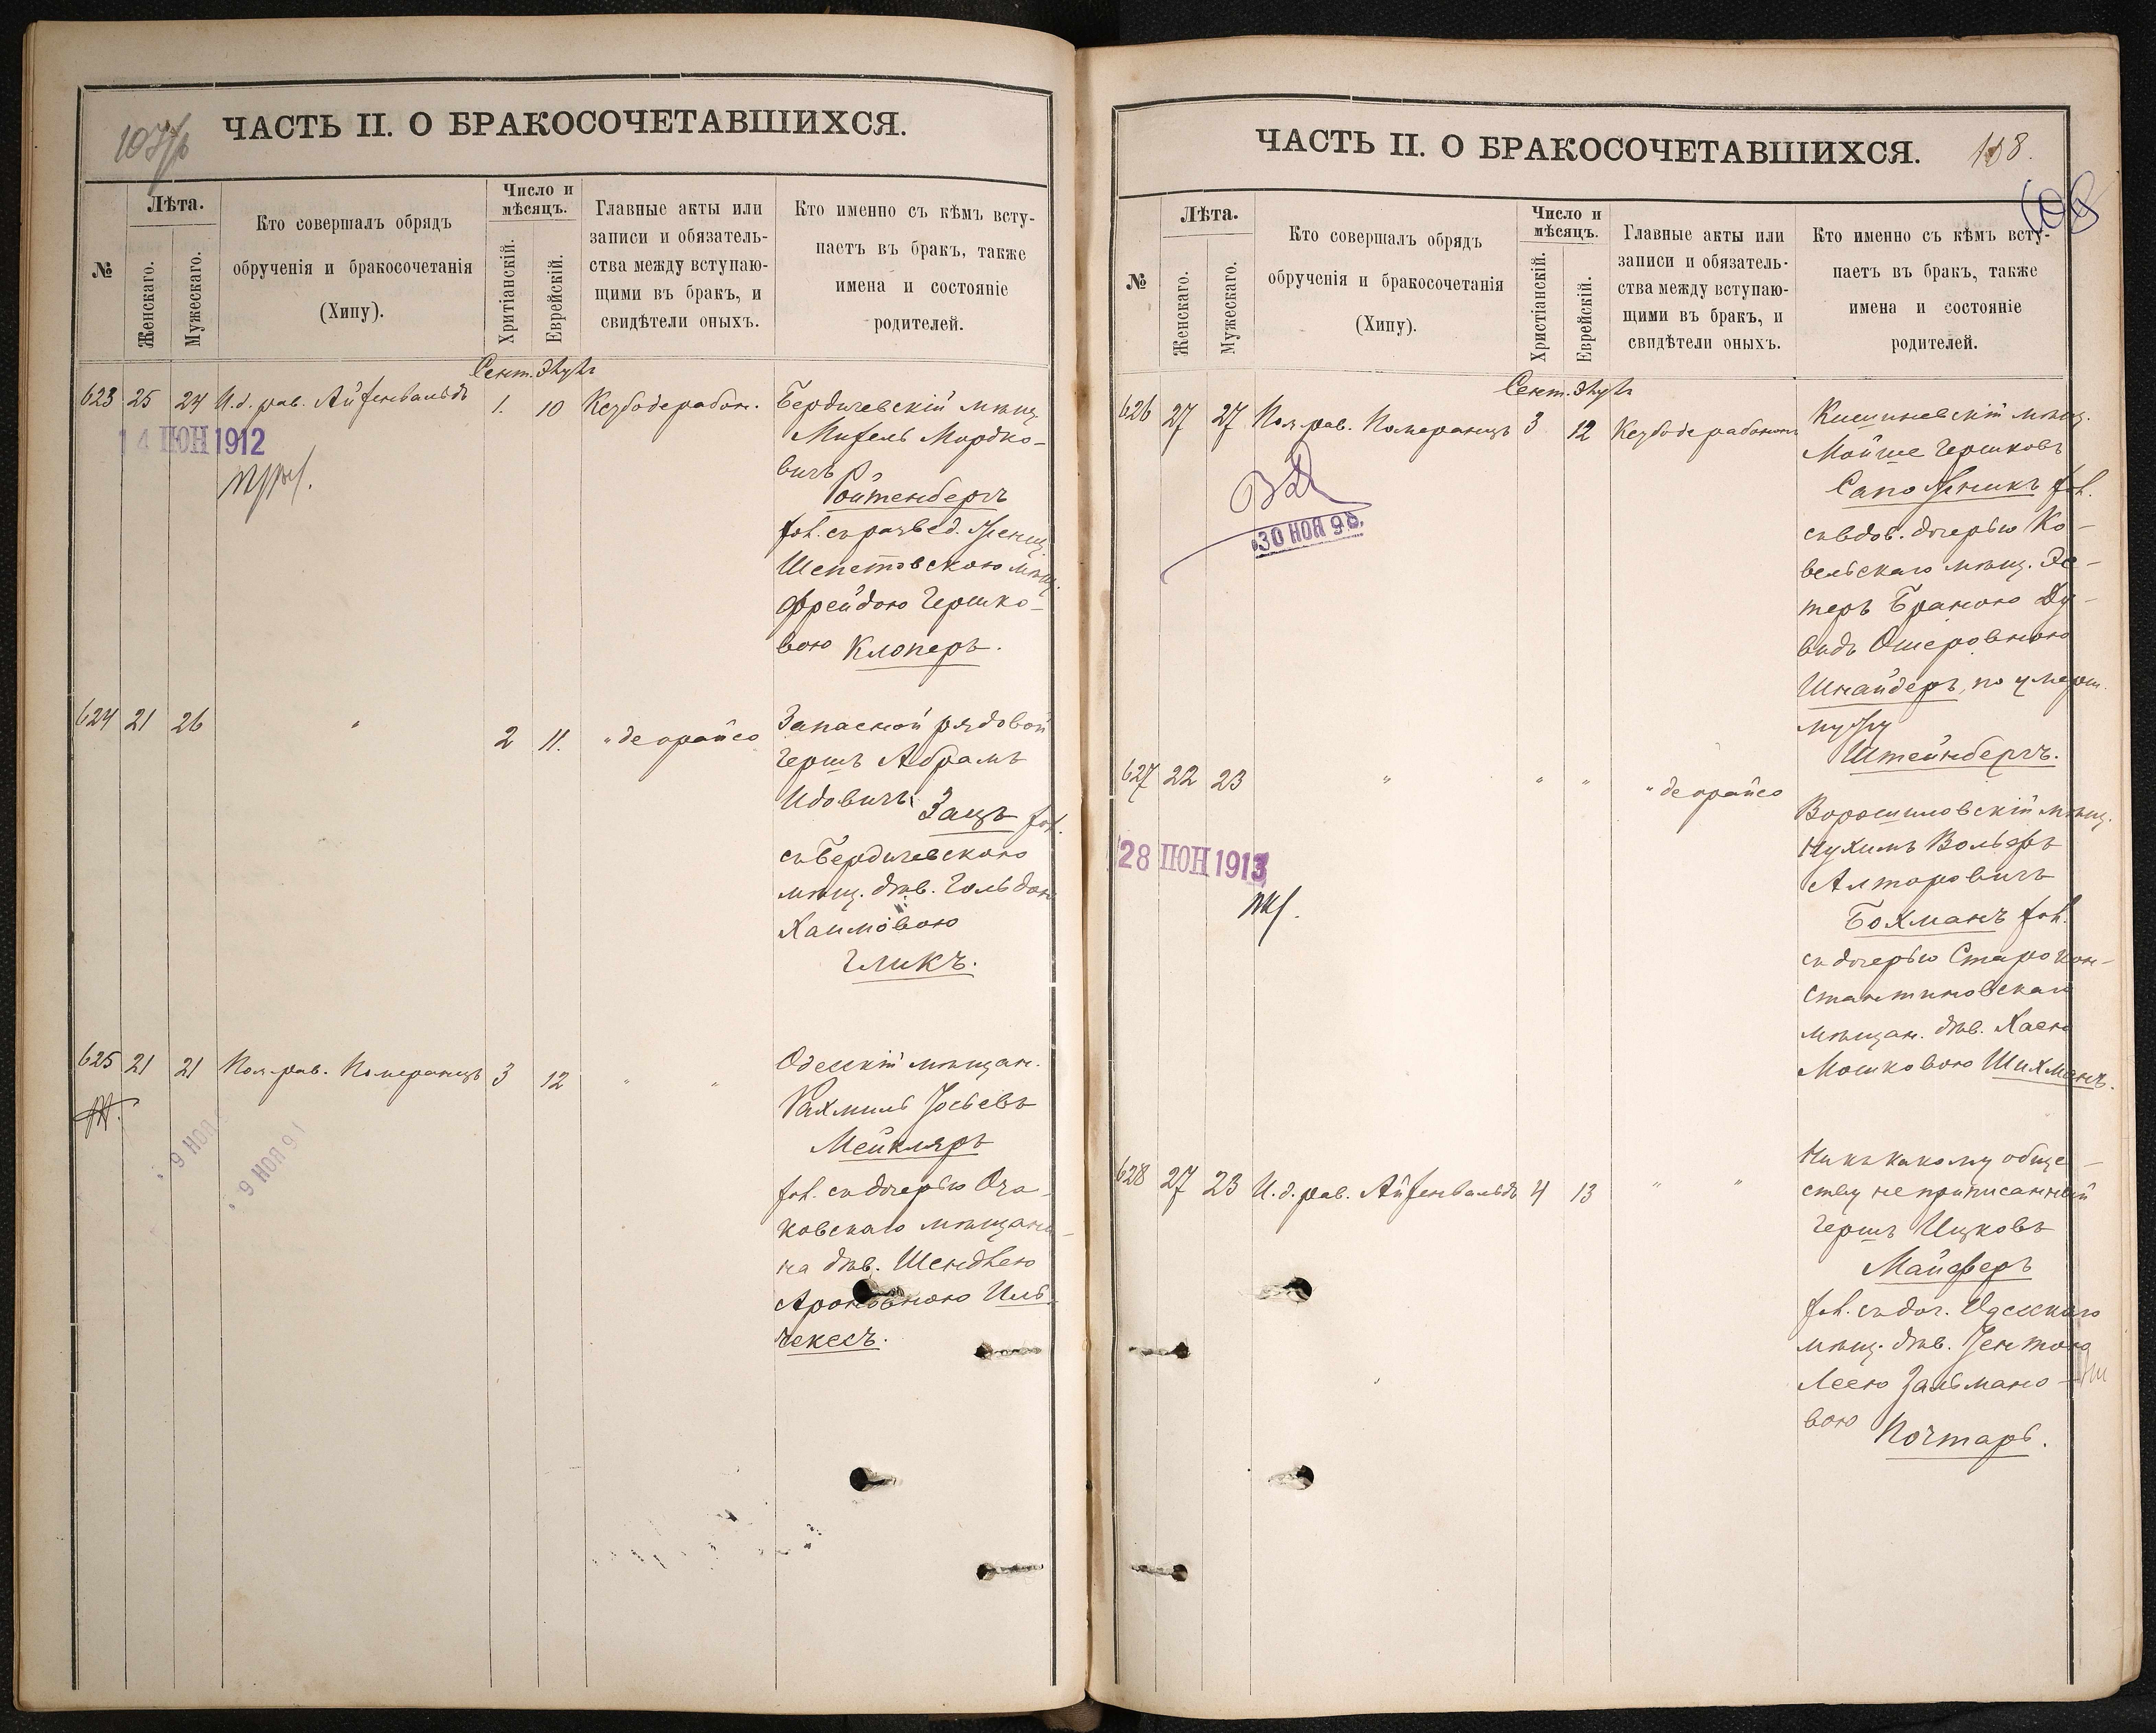 ЧАСТЬ II. О БРАКОСОЧЕТАВШИХСЯ.
№
Лѣта.
Женскаго.
Мужескаго.
Кто совершалъ обрядъ
обрученія и бракосочетанія
(Хипу).
Число и
мѣсяцъ.
Хритіанскій.
Еврейскій.
Главные акты или
записи и обязатель-
ства между вступаю-
щими въ бракъ, и
свидѣтели оныхъ.
Кто именно съ кѣмъ всту-
паетъ въ бракъ, также
имена и состояніе
родителей.
Сент. Элулъ
623 25 24 И.д. рав. Айзенвальдъ 1. 10
14 ІЮН 1912
Бердичевскій мѣщ.
Мордко-
вичъ
Ройтенбергъ
съ развед. женщ.
Шепетовскою мѣщ.
Фрейдою Гершко-
вою Клоперъ.
624 21 26 " 2 11. " деорайсо
Запасной рядовой
Гершъ Абрамъ
Идовичъ Зацъ
съ Бердичевскою
мѣщ. дѣв. Гольдою
Хаимовою
Гликъ.
625 21 21 Пом. рав. Померанцъ 3 12 " "
9 НОЯ
9 НОЯ 91
Одесскій мѣщан.
Рахмиль Іосьевъ
Мейкляръ
съ дочерью Оча-
ковскаго мѣщани-
на дѣв. Шендлею
Ароновною Иль-
чекесъ.
ЧАСТЬ II. О БРАКОСОЧЕТАВШИХСЯ.
108.
108
№
Лѣта.
Женскаго.
Мужескаго.
Кто совершалъ обрядъ
обрученія и бракосочетанія
(Хипу).
Число и
мѣсяцъ.
Христіанскій.
Еврейскій.
Главные акты или
записи и обязатель-
ства между вступаю-
щими въ бракъ, и
свидѣтели оныхъ.
Кто именно съ кѣмъ всту-
паетъ въ бракъ, также
имена и состояніе
родителей.
Сент. Элулъ
626 27 27 Пом. рав. Померанцъ 3 12
30 НОЯ 98
Кишиневскій мѣщ.
Мойше Гершковъ
Сапожникъ
съ вдов. дочерью Ко-
вельскаго мѣщ. Эс-
теръ Браною Ду-
видъ Ошеровною
Шнайдеръ, по умерш.
мужу
Штейнбергъ.
627 22 23 " " " " деорайсо
28 ІЮН 1913
Ворошиловскій мѣщ.
Нухимъ Вольфъ
Алторовичъ
Бохманъ
съ дочерью Старокон-
стантиновскаго
мѣщан. дѣв. Хаею
Мошковою Шихманъ.
628 27 23 И.д. рав. Айзенвальдъ 4 13 " "
Ни къ какому обще-
ству не приписанный
Гершъ Ицковъ
Майферъ
съ доч. Одесскаго
мѣщ. дѣв. Зентою
Леею Зальмано-
вою Почтарь.